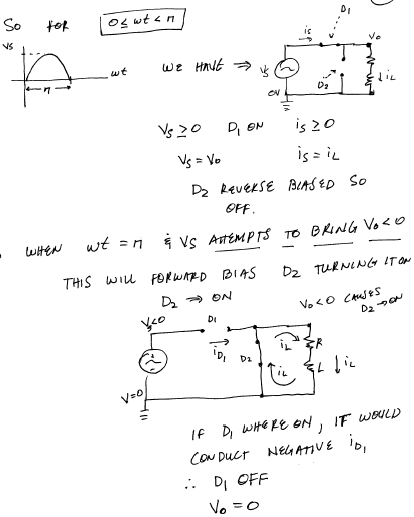 SO FOR 0 ≤ wt < π
D1
Vs
is
Vo
wt
π
WE HAVE ⇒
Vs
D2
iL
0V
Vs ≥ 0 D1 ON is ≥ 0
Vs = Vo is = iL
D2 REVERSE BIASED SO
OFF.
WHEN wt = π & Vs ATTEMPTS TO BRING Vo < 0
THIS WILL FORWARD BIAS D2 TURNING IT ON
D2 ⇒ ON
Vo < 0 CAUSES
D2 → ON
V<0
D1
iD1
D2
iL
iL
R
L
iL
V=0
IF D1 WHERE ON, IT WOULD
CONDUCT NEGATIVE iD1
∴ D1 OFF
Vo = 0